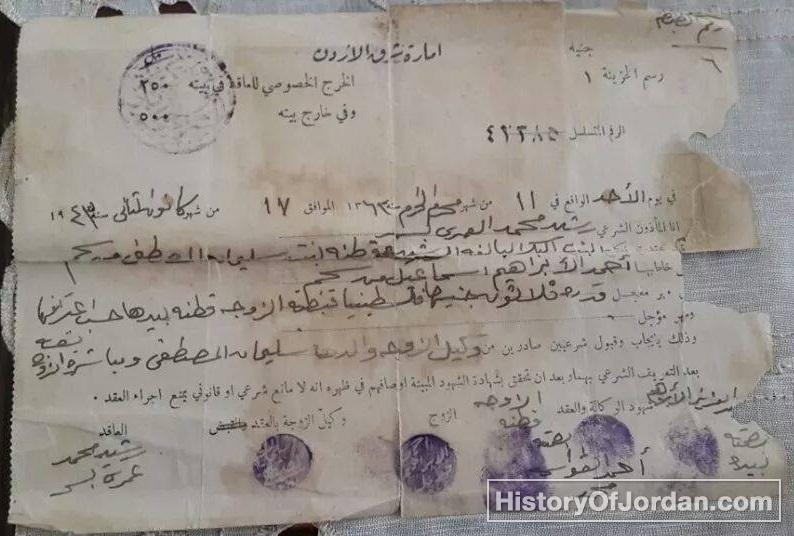 رقم
٦
امارة شرق الاردن
جنيه
رسم الخزينة ١
الخرج الخصوصي للعاقد في بيته ٢٥٠
وفي خارج بيته ٥٠٠
الرقم المتسلسل ٤٢٣٨٥
في يوم الأحد الواقع في ١١ من شهر محرم الحرام سنة ١٣٦٣ الموافق ١٧ من شهر كانون الثاني سنة ١٩٤٣
انا المأذون الشرعي رشيد محمد العمري
البكر البالغة الرشيدة قطنه ابنت سليمان المصطفى من
خاطبها أحمد الابراهيم اسماعيل من
مهر معجل قدره ثلاثون جنيها فلسطينيا قبضته الزوجه قطنه بيدها حسب اعترافها
ومهر مؤجل
وذلك بإيجاب وقبول شرعيين صادرين من وكيل الزوجه والدها سليمان المصطفى ومباشرة الزوج نفسه
بعد التعريف الشرعي بهما وبعد ان تحقق بشهادة الشهود المبينة اوصافهم في ظهره انه لا مانع شرعي او قانوني يمنع اجراء العقد .
شهود الوكالة والعقد
الزوجه قطنه
الزوج
وكيل الزوجة بالعقد
العاقد
رشيد محمد
بصمة
أحمد
بصمة
بيده
HistoryOfJordan.com